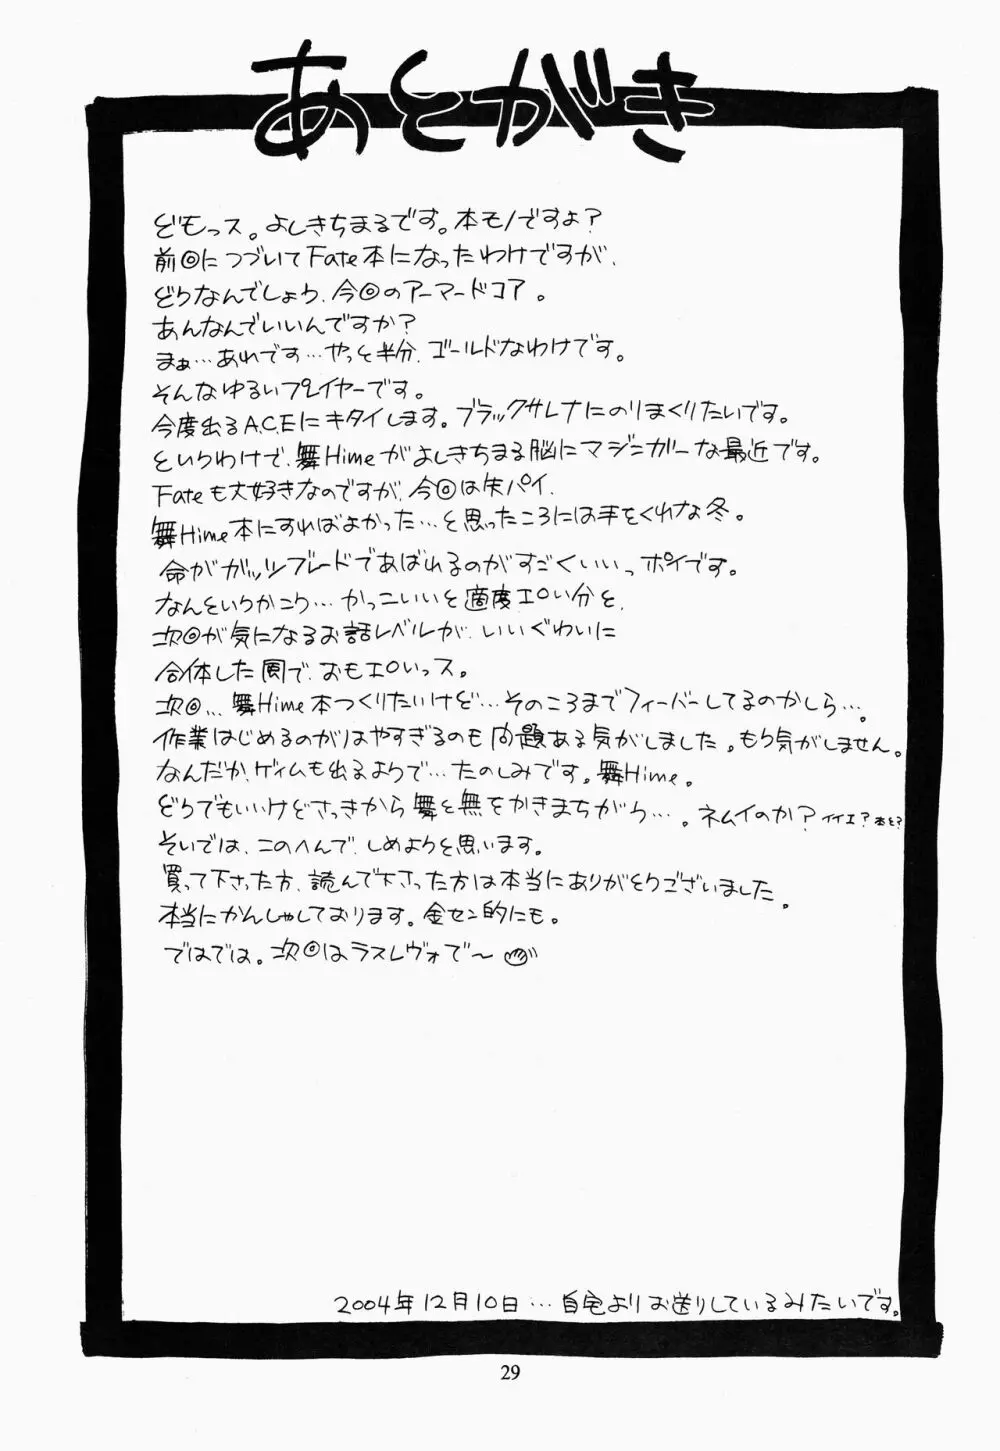 あとがき
どもっス。よしきちまるです。本モノですよ？
前回につづいてFate本になったわけですが、
どうなんでしょう、今回のアーマードコア。
あんなんでいいんですか？
まぁ…あれです…やっと半分、ゴールドなわけです。
そんなゆるいプレイヤーです。
今度出るA.C.Eにキタイします。ブラックサレナにのりまくりたいです。
というわけで、舞Himeがよしきちまる脳にマジニガーな最近です。
Fateも大好きなのですが、今回は失パイ、
舞Hime本にすればよかった…と思ったころには手をくれな冬。
命がガッツブレードであばれるのがすごくいいっポイです。
なんというかこう…かっこいいと適度エロい分と、
次回が気になるお話レベルが、いいぐわいに
合体した風で、おもエロいっス。
次回…舞Hime本つくりたいけど…そのころまでフィーバーしてるのかしら…。
作業はじめるのがはやすぎるのも問題ある気がしました。もう気がしません。
なんだか、ゲイムも出るようで…たのしみです。舞Hime。
どうでもいいけどさっきから舞と無をかきまちがう…。ネムイのか？イイエ？本と？
そいでは、このへんで、しめようと思います。
買って下さった方、読んで下さった方は本当にありがとうございました。
本当にかんしゃしております。金セン的にも。
ではでは。次回はラスレヴォで〜
2004年12月10日…自宅よりお送りしているみたいです。
29